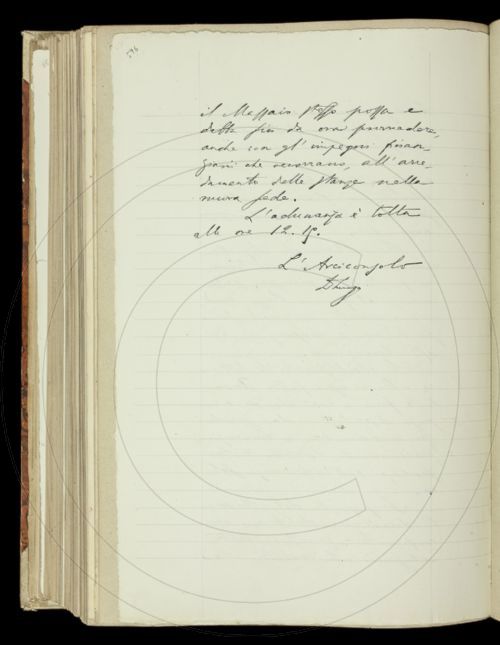 596
il Massaio stesso possa e
debba fin da ora provvedere,
anche con gl' impegni finan
ziari che occorrano, all' arre-
damento delle stanze nella
nuova sede.
L'adunanza è tolta
alle ore 12.15.
L'Arciconsolo